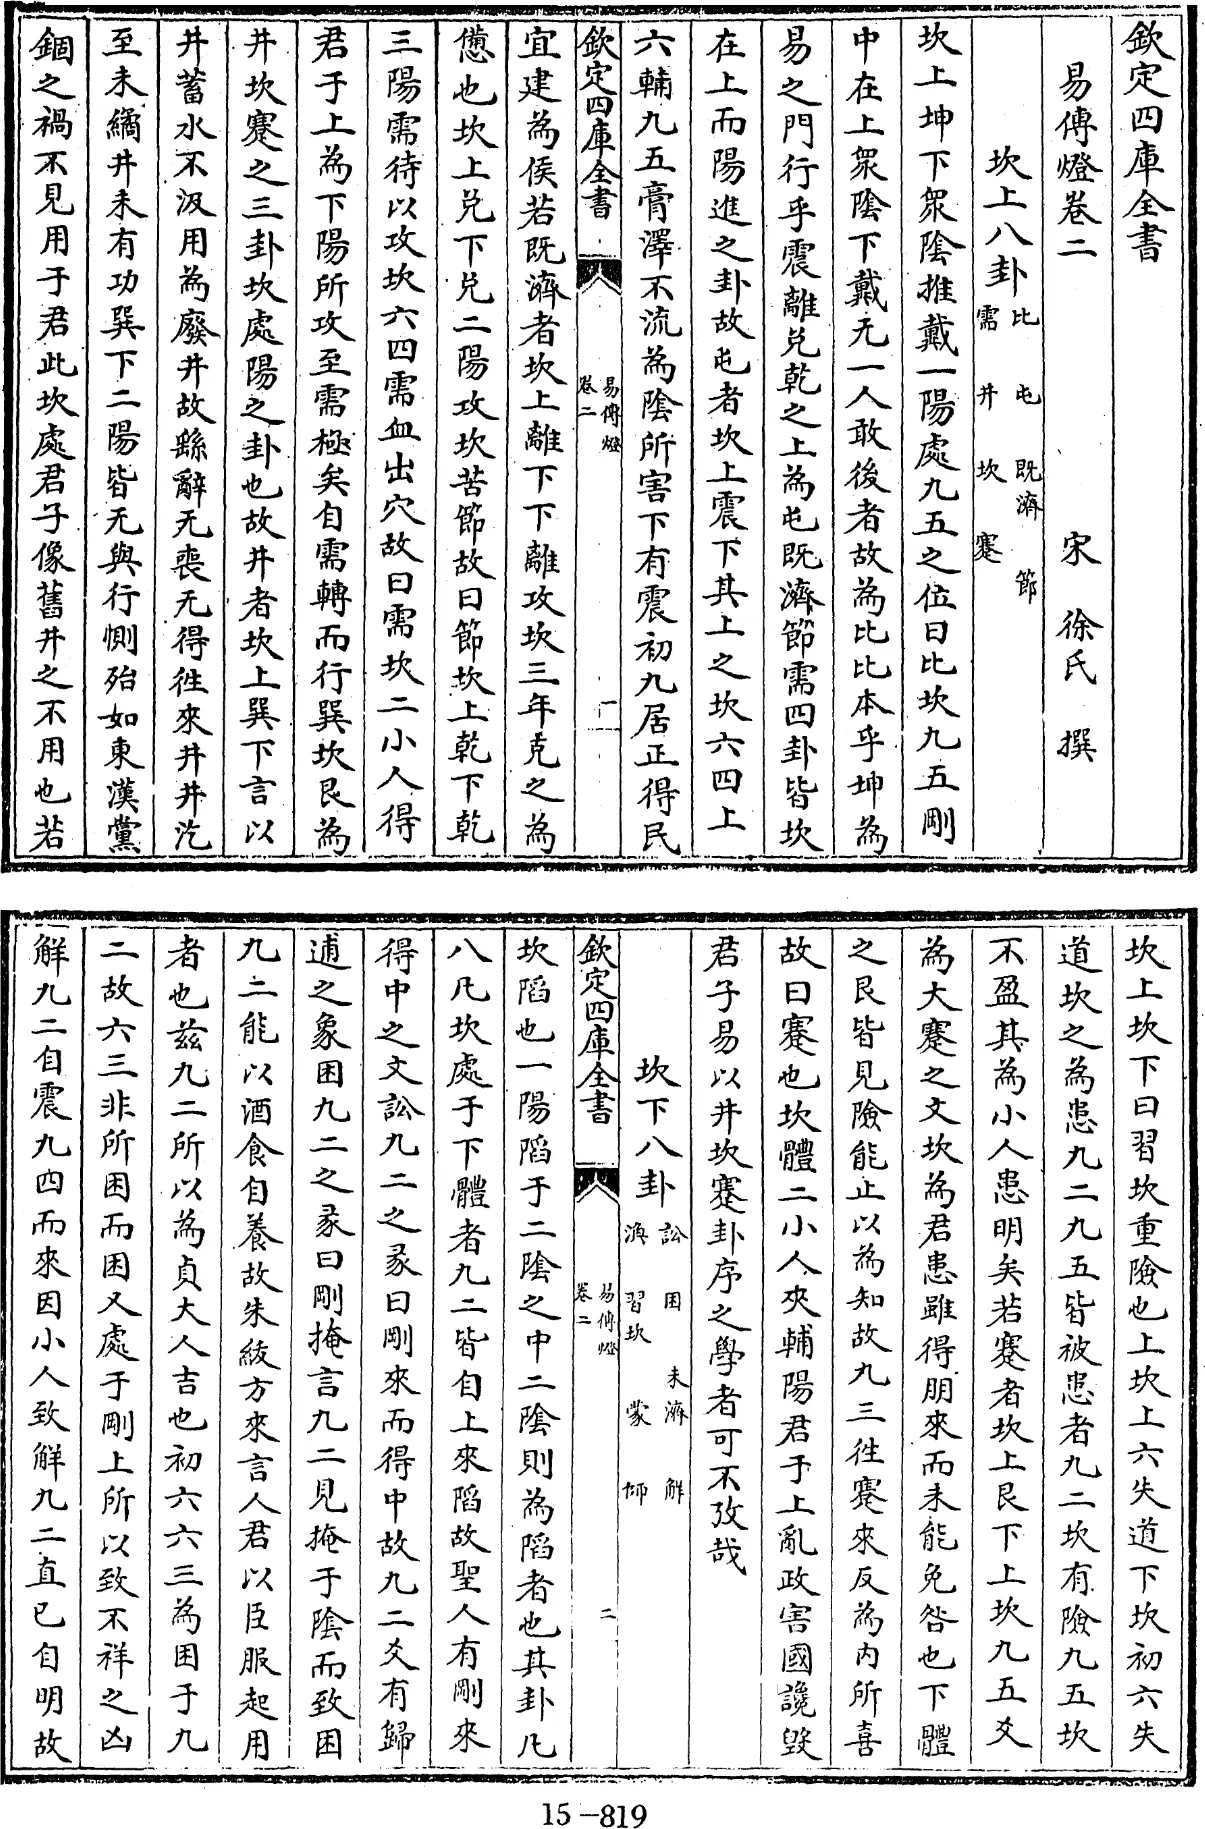 欽定四庫全書
易傳燈卷二　宋　徐氏　撰
坎上八卦比　屯　既濟　節　需　井　坎　蹇
坎上坤下衆陰推戴一陽處九五之位曰比坎九五剛
中在上衆陰下戴无一人敢後者故為比比本乎坤為
易之門行乎震離兌乾之上為屯既濟節需四卦皆坎
在上而陽進之卦故屯者坎上震下其上之坎六四上
六輔九五膏澤不流為陰所害下有震初九居正得民
欽定四庫全書　易傳燈　卷二　一
宜建為侯若既濟者坎上離下下離攻坎三年克之為
憊也坎上兌下兌二陽攻坎苦節故曰節坎上乾下乾
三陽需待以攻坎六四需血出穴故曰需坎二小人得
君于上為下陽所攻至需極矣自需轉而行巽坎艮為
井坎蹇之三卦坎處陽之卦也故井者坎上巽下言以
井蓄水不汲用為廢井故繇辭无喪无得徃來井井汔
至未繘井未有功巽下二陽皆无與行惻殆如東漢黨
錮之禍不見用于君此坎處君子像舊井之不用也若
坎上坎下曰習坎重險也上坎上六失道下坎初六失
道坎之為患九二九五皆被患者九二坎有險九五坎
不盈其為小人患明矣若蹇者坎上艮下上坎九五爻
為大蹇之文坎為君患雖得朋來而未能免咎也下體
之艮皆見險能止以為知故九三徃蹇來反為内所喜
故曰蹇也坎體二小人夾輔陽君于上亂政害國讒毁
君子易以井坎蹇卦序之學者可不攷哉
坎下八卦訟　困　未濟　解　渙　習坎　蒙　師
欽定四庫全書　易傳燈　卷二　二
坎陷也一陽陷于二陰之中二陰則為陷者也其卦凡
八凡坎處于下體者九二皆自上來陷故聖人有剛來
得中之文訟九二之彖曰剛來而得中故九二爻有歸
逋之象困九二之彖曰剛掩言九二見掩于陰而致困
九二能以酒食自養故朱紱方來言人君以臣服起用
者也兹九二所以為貞大人吉也初六六三為困于九
二故六三非所困而困又處于剛上所以致不祥之凶
解九二自震九四而來因小人致解九二直已自明故
15-819